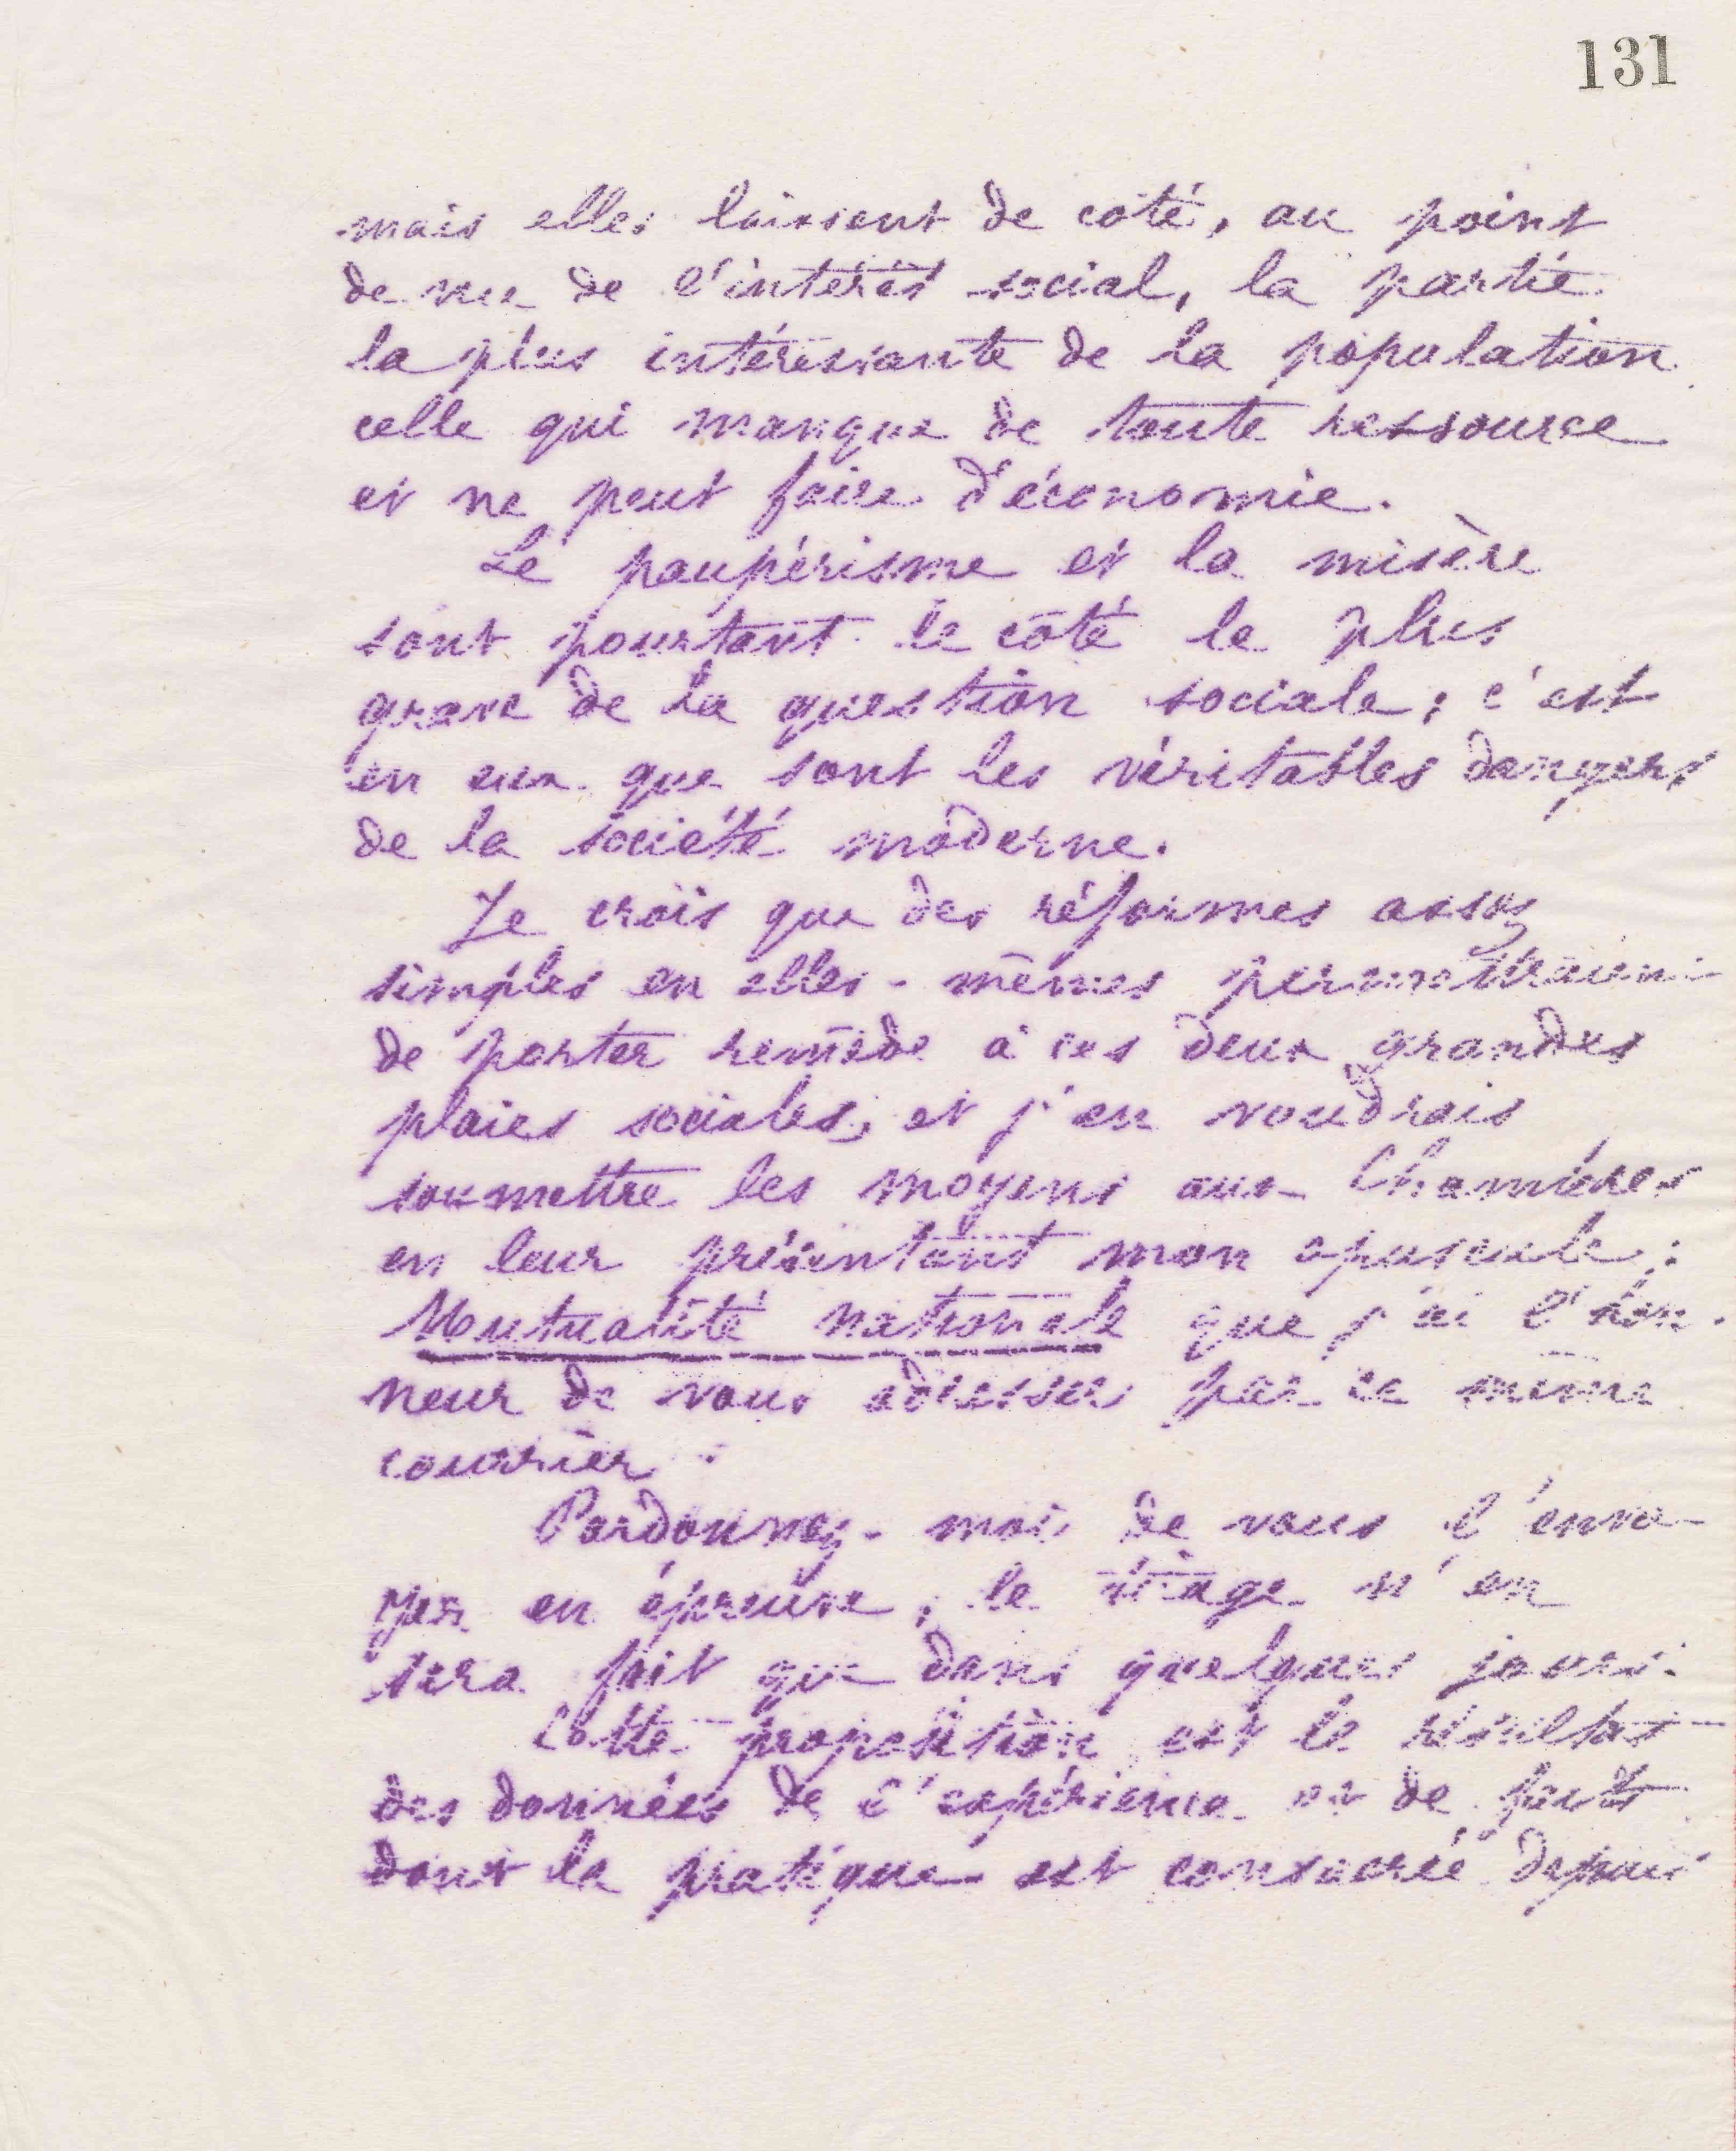 131
mais elles laissent de côté, au point
de vue de l'intérêt social, la partie
la plus intéressante de la population
celle qui manque de toute ressource
et ne peut faire d'économie.
Le paupérisme et la misère
sont pourtant le côté le plus
grave de la question sociale ; c'est
en eux que sont les véritables dangers
de la société moderne.
Je crois que des réformes assez
simples en elles-mêmes permettraient
de porter remède à ces deux grandes
plaies sociales, et j'en voudrais
soumettre les moyens aux Chambres
en leur présentant mon opuscule :
Mutualité nationale que j'ai l'hon-
neur de vous adresser par ce même
courrier.
Pardonnez-moi de vous l'envo-
yer en épreuve, le tirage n'en
sera fait que dans quelques jours.
Cette proposition est le résultat
des données de l'expérience et de faits
dont la pratique est consacrée depuis